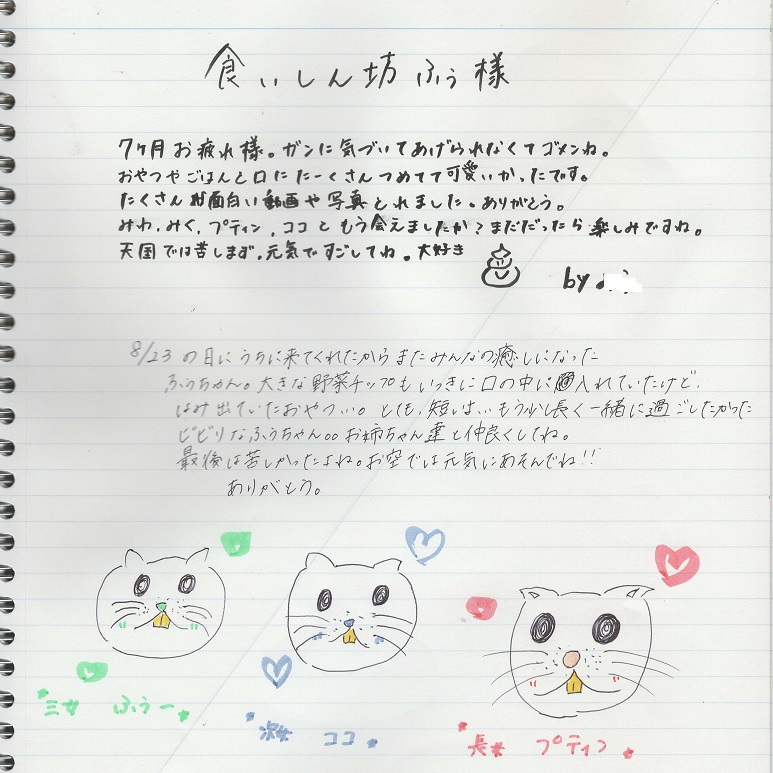 食いしん坊 ふぅ様
7ヶ月 お疲れ様。ガンに気づいてあげられなくてゴメンね。
おやつやごはんと口に たーくさん つめてて可愛いかったです。
たくさん 面白い動画や写真とれました。ありがとう。
みわ、みく、プティン、ココと もう会えましたか？まだだったら楽しみですね。
天国では苦しまず、元気ですごしてね。大好き
by
8/23の日にうちに来てくれたからまたみんなの癒しになった
ふうちゃん。大きな野菜チップもいっきに口の中に入れていたけど、
はみ出ていたおやつ…。とても短い…もう少し長く一緒に過ごしたかった
ビビリなふうちゃん。。お姉ちゃん達と仲良くしてね。
最後は苦しかったよね。お空では元気にあそんでね!!
ありがとう。
三女 ふぅー
次女 ココ
長女 プティン